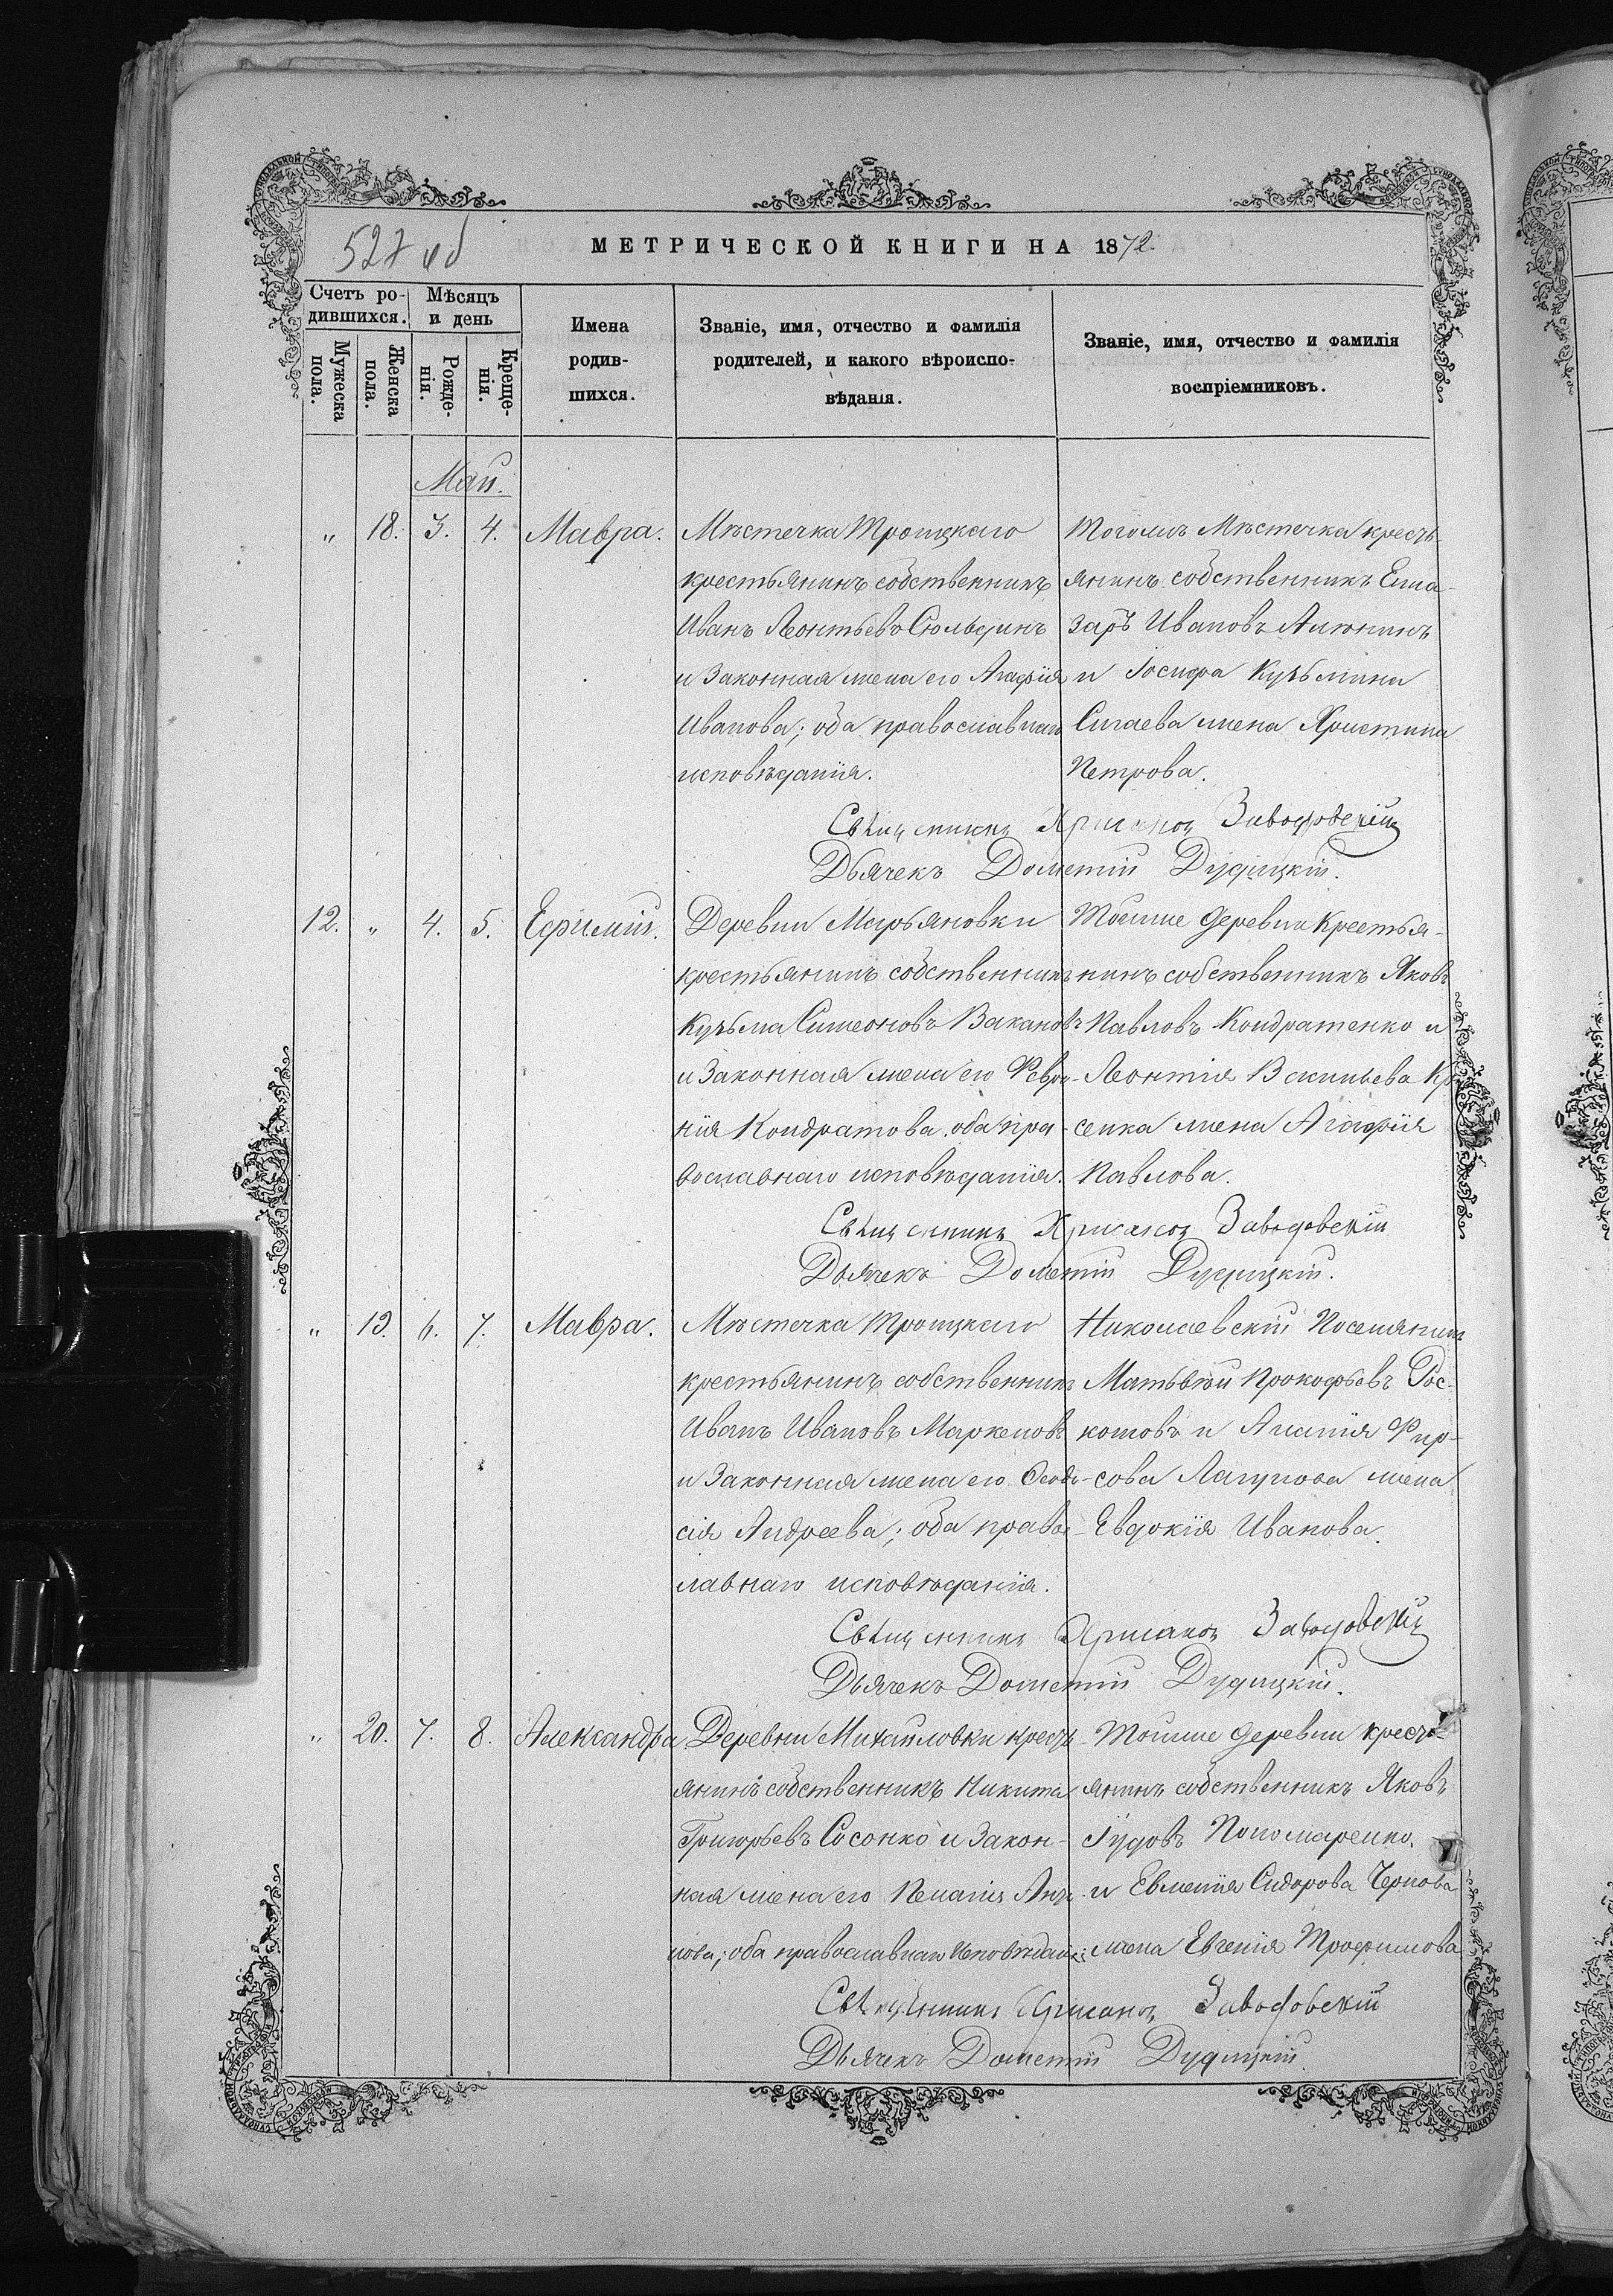 527 об
МЕТРИЧЕСКОЙ КНИГИ НА 1872.
Счетъ ро-
дившихся.
Мужеска
пола.
Женска
пола.
Мѣсяцъ
и день
Рожде-
нія.
Креще-
нія.
Имена
родив-
шихся.
Званіе, имя, отчество и фамилія
родителей, и какого вѣроиспо-
вѣданія.
Званіе, имя, отчество и фамилія
воспріемниковъ.
Май.
" 18. 3. 4. Мавра.
Мѣстечка Троицкаго
крестьянинъ собственникъ
Иванъ Леонтьевъ
и законная жена его Агафія
Иванова; оба православнаго
исповѣданія.
Тогожъ Мѣстечка кресть-
янинъ собственникъ Елиа-
заръ Ивановъ
и Іосифа Кузьмина
жена Христина
Петрова.
Священникъ Хрисанфъ Заводовскій
Дьячекъ Дометій Дудицкій.
12. " 4. 5. Ефимій.
Деревни Марьяновки
крестьянинъ собственникъ
Кузьма Симеоновъ Вакановъ
и законная жена его Февро-
нія Кондратова. оба пра-
вославнаго исповѣданія.
Тойже деревни крестья-
нинъ собственникъ Яковъ
Павловъ Кондратенко и
Леонтія Васильева
сенка жена Агафія
Павлова.
Священникъ Хрисанфъ Заводовскій
Дьячекъ Дометій Дудицкій.
" 19. 6. 7. Мавра.
Мѣстечка Троицкаго
крестьянинъ собственникъ
Иванъ Ивановъ Маркеловъ
и законная жена его Ѳеодо-
сія Андреева; оба правос-
лавнаго исповѣданія.
Николаевскій Поселянинъ
Матьвѣй Прокофьевъ Рос-
котовъ и Ананія Фир-
сова Лагунова жена
Евдокія Иванова.
Священникъ Хрисанфъ Заводовскій
Дьячекъ Дометій Дудицкій.
" 20. 7. 8. Александра
Деревни Михайловки кресть-
янинъ собственникъ Никита
Григорьевъ Сосонко и закон-
ная жена его Пелагія
нова; оба православнаго исповѣданія
Тойже деревни кресть-
янинъ собственникъ Яковъ
Іудовъ Пономаренко.
и Евменія Сидорова Чернова
жена Евгенія Трофимова
Священникъ Хрисанфъ Заводовскій
Дьячекъ Дометій Дудицкій.